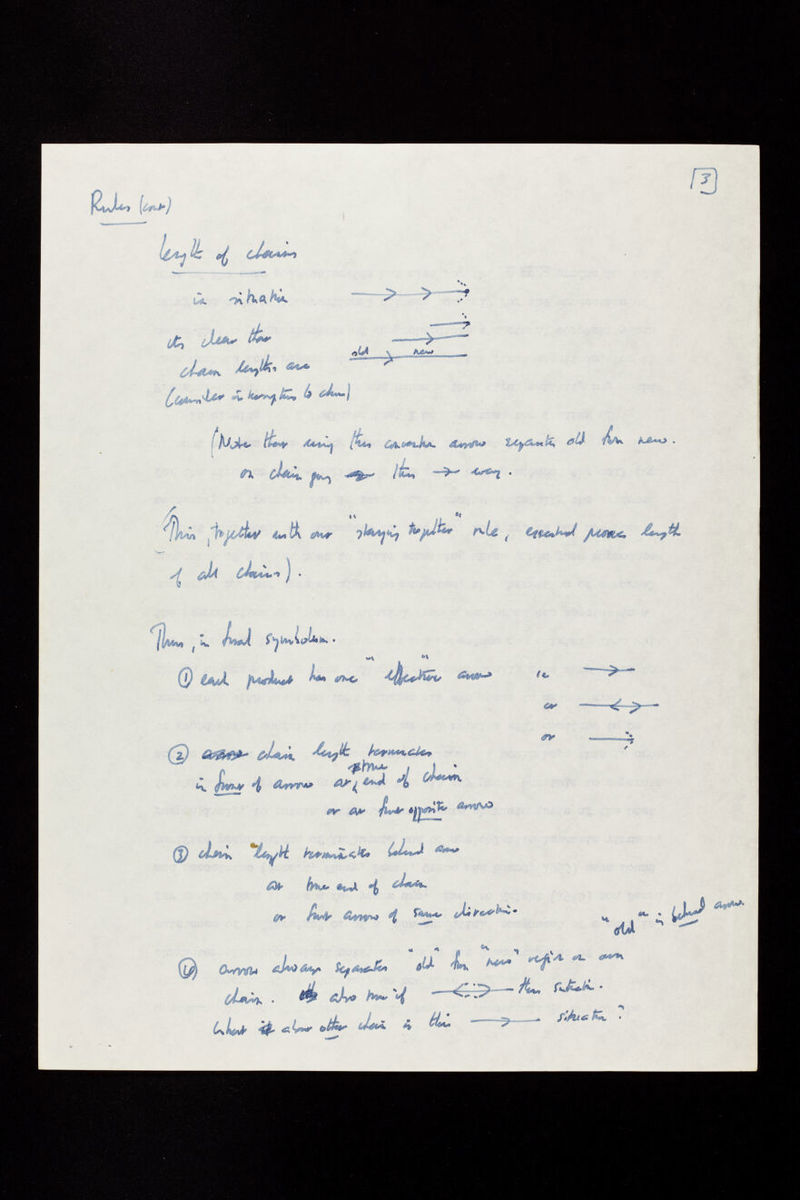 3
Rules (cont)
length of chains
in situation
its clear that
old new
chain lengths are
(consider interruptions to chain)
(Note that using this convention arrow separates old from new.
on chain going this → way.
(This, together with our "staying together" rule, essential proves length
of all chains).
Thus, in final symbolism.
① each product has one "effective" arrow ie
or
or
② chain length terminates
in front of arrow at true end of chain
or at first opposite arrow
③ chain length terminates behind arrow
at true end of chain
or first arrow of same direction.
"old" is behind arrow
④ arrow always separates "old" from "new" region on own
chain. also true if this situation.
What about other chain in this → situation?